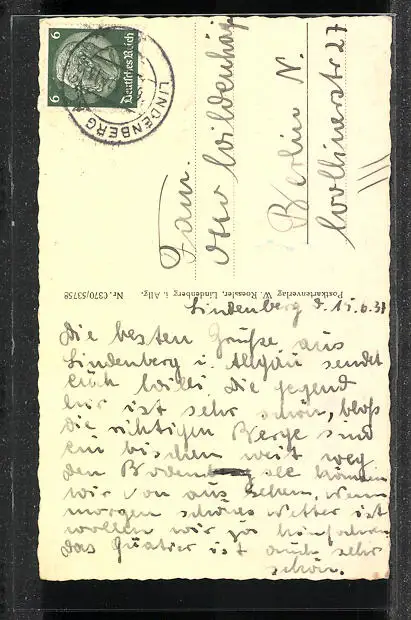 6 6
Deutsches Reich
LINDENBERG
Fam.
Otto Wildenhayn
Berlin N.
Wollinerstr 27
Postkartenverlag W. Roessler, Lindenberg i. Allg. Nr. C370/53758
Lindenberg d. 15.6.37
Die besten Grüße aus
Lindenberg i. Allgäu sendet
euch Willi. Die Gegend
hir ist sehr schön, blos
die richtigen Berge sind
ein bischen weit weg
den Bodensee können
wir von aus sehen, Wenn
morgen schönes Wetter ist
wollen wir ja hinfahren
das Quatier ist auch sehr
schön.